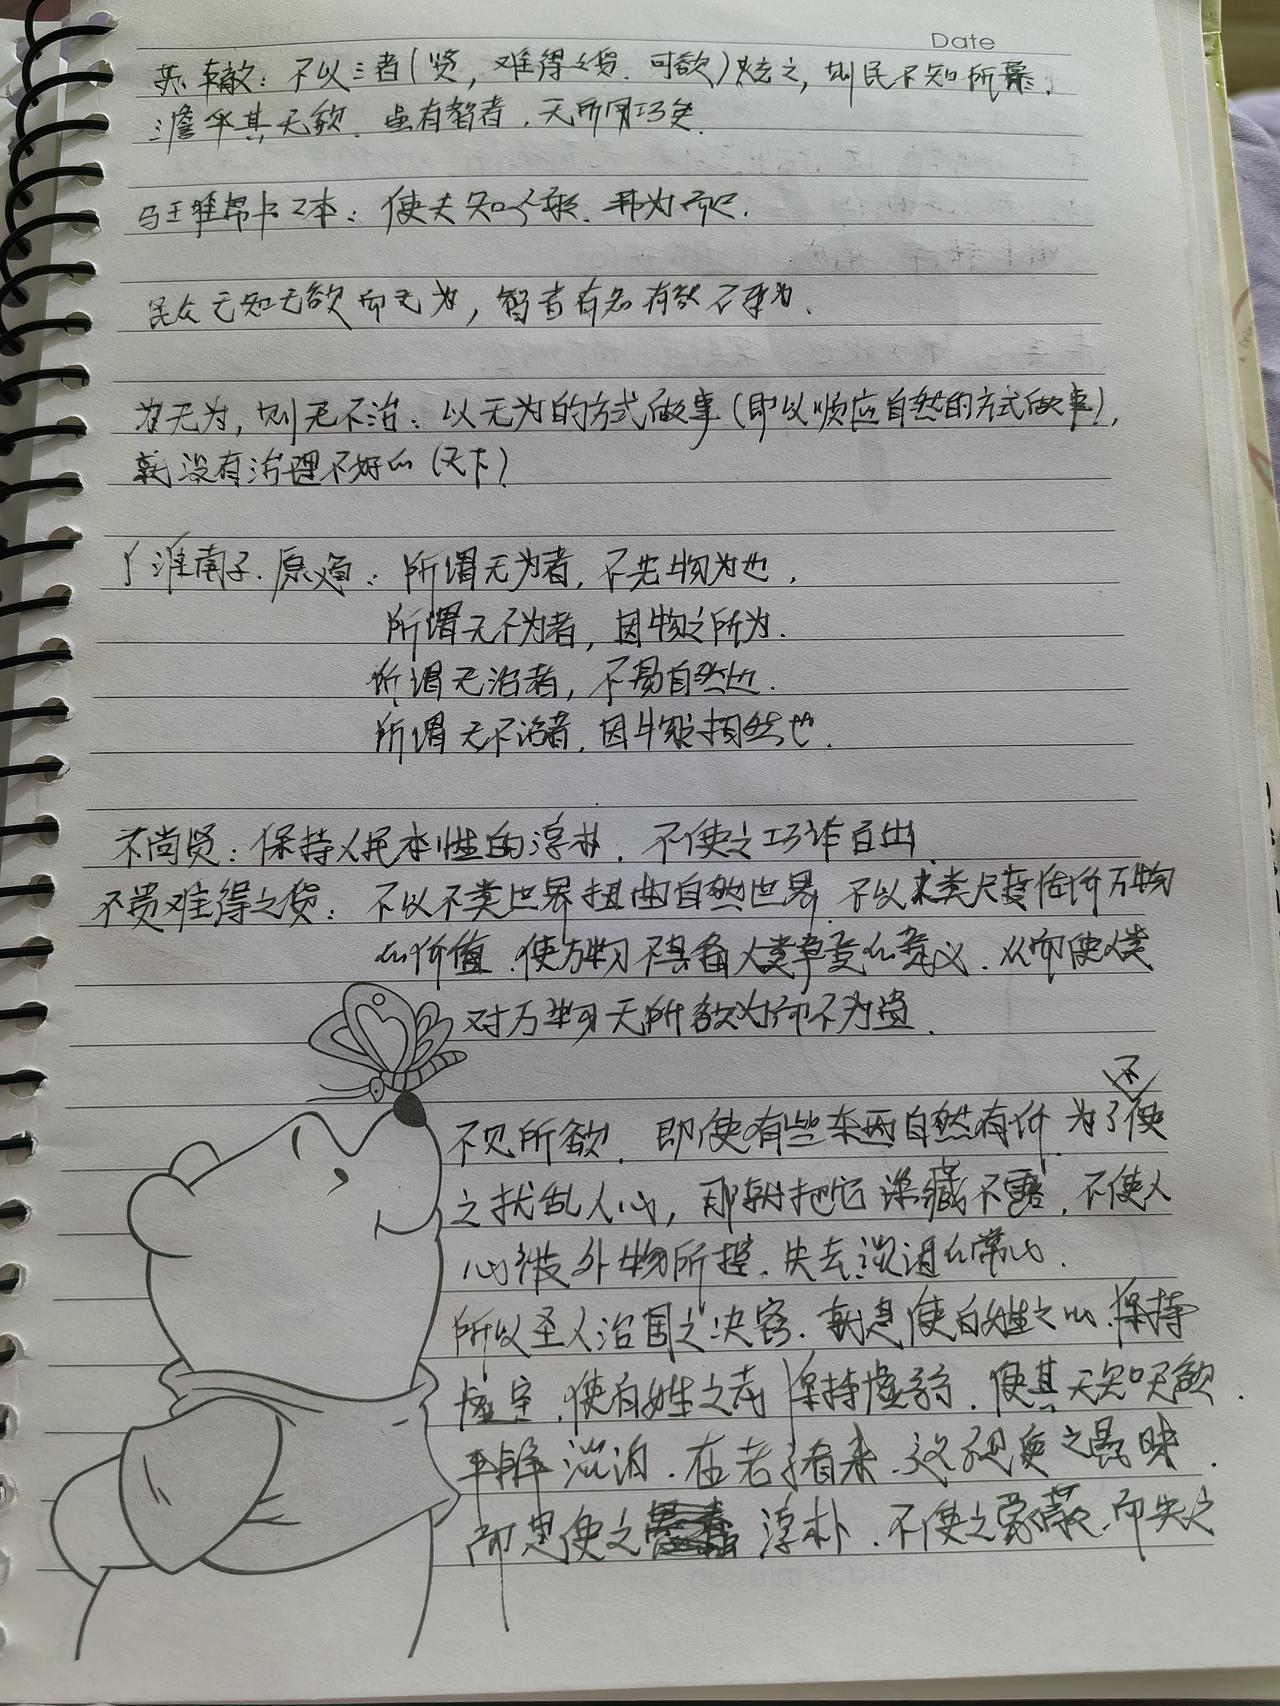 Date
苏辙：不以三者（贤，难得之货，可欲）炫之，则民不知所慕，
澹乎其无欲，虽有智者，无所用巧矣.
马王堆帛书乙本：使夫知不敢，弗为而已.
民众无知无欲而无为，智者有名有欲不
为无为，则无不治：以无为的方式做事（即以顺应自然的方式做事），
就没有治理不好的（天下）
《淮南子.原道：所谓无为者，不先物为也，
所谓无不为者，因物之所为.
所谓无治者，不易自然也.
所谓无不治者，因物之相然也.
不尚贤：保持人民本性的淳朴，不使之巧诈百出
不贵难得之货：不以不类世界扭曲自然世界，不以来类尺度估价万物
的价值，使万物不具备人类争夺的意义，从而使人类
对万物无所欲为而不为贵.
不
不见所欲，即使有些东西自然有价，为了使
之扰乱人心，那就把它深藏不露，不使人
心被外物所控，失去淡泊的常心.
所以圣人治国之决窍，就是使百姓之心保持
虚空，使百姓之志保持虚弱，使其无知无欲，
平静淡泊，在老子看来，这不是使之愚昧，
而是使之淳朴，不使之蒙蔽，而失之